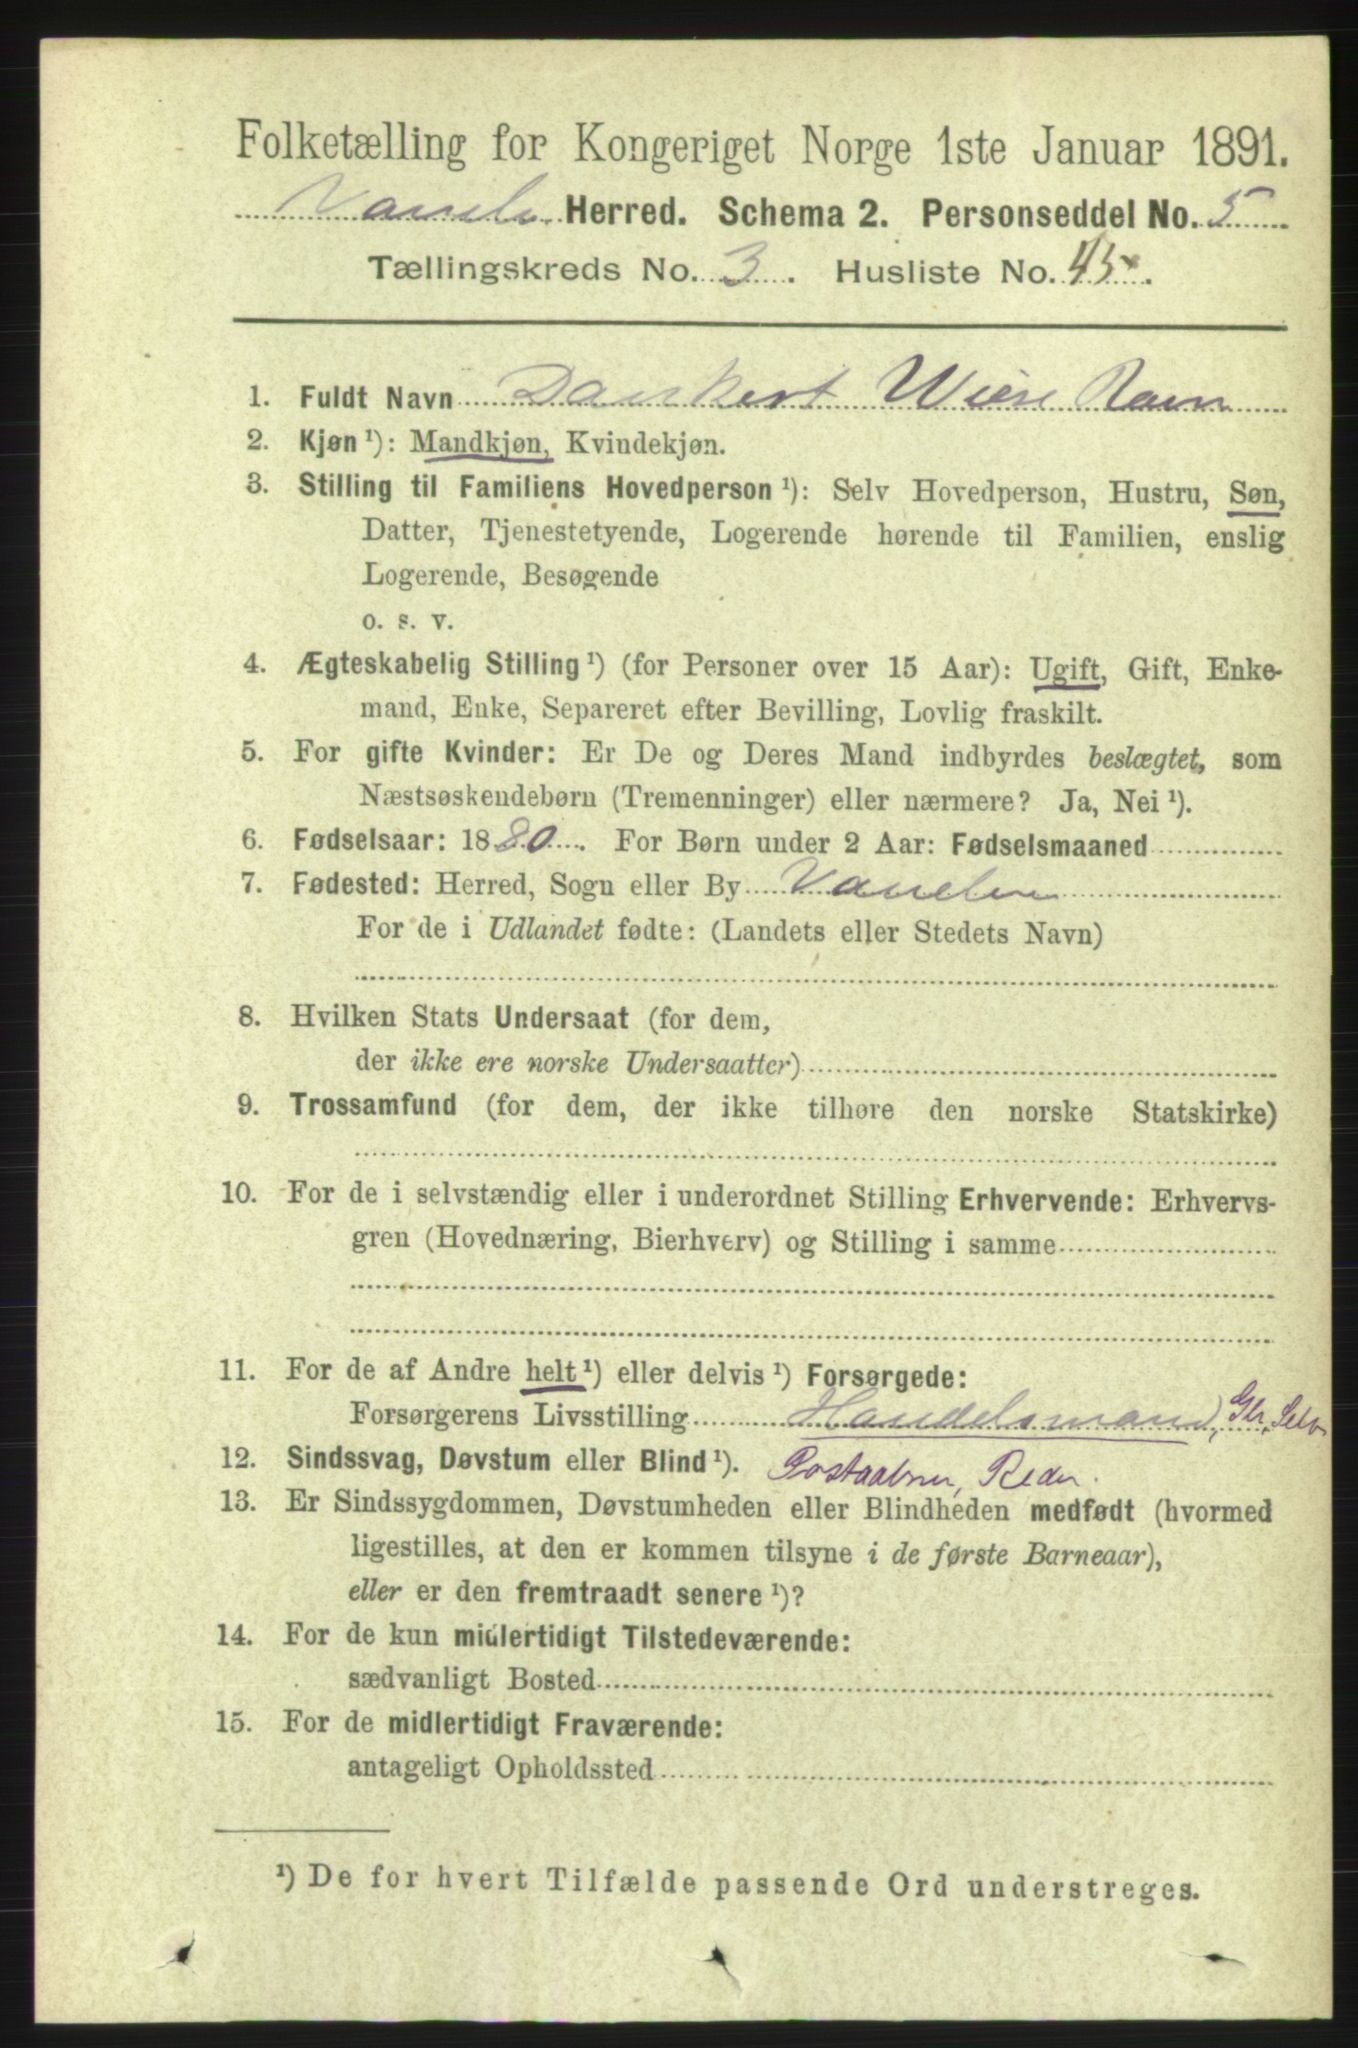 Folketælling for Kongeriget Norge 1ste Januar 1891.
Herred. Schema 2. Personseddel No. 5
Tællingskreds No. 3. Husliste No. 45.
1. Fuldt Navn Dankert Wiese Ravn
2. Kjøn ¹): Mandkjøn, Kvindekjøn.
3. Stilling til Familiens Hovedperson ¹): Selv Hovedperson, Hustru, Søn,
Datter, Tjenestetyende, Logerende hørende til Familien, enslig
Logerende, Besøgende
o. s. v.
4. Ægteskabelig Stilling ¹) (for Personer over 15 Aar): Ugift, Gift, Enke-
mand, Enke, Separeret efter Bevilling, Lovlig fraskilt.
5. For gifte Kvinder: Er De og Deres Mand indbyrdes beslægtet, som
Næstsøskendebørn (Tremenninger) eller nærmere? Ja, Nei ¹).
6. Fødselsaar: 1880. For Børn under 2 Aar: Fødselsmaaned
7. Fødested: Herred, Sogn eller By
For de i Udlandet fødte: (Landets eller Stedets Navn)
8. Hvilken Stats Undersaat (for dem,
der ikke ere norske Undersaatter)
9. Trossamfund (for dem, der ikke tilhøre den norske Statskirke)
10. For de i selvstændig eller i underordnet Stilling Erhvervende: Erhvervs-
gren (Hovednæring, Bierhverv) og Stilling i samme
11. For de af Andre helt ¹) eller delvis ¹) Forsørgede:
Forsørgerens Livsstilling Handelsmand,
12. Sindssvag, Døvstum eller Blind ¹). Postaabner, Reder.
13. Er Sindssygdommen, Døvstumheden eller Blindheden medfødt (hvormed
ligestilles, at den er kommen tilsyne i de første Barneaar),
eller er den fremtraadt senere ¹)?
14. For de kun midlertidigt Tilstedeværende:
sædvanligt Bosted
15. For de midlertidigt Fraværende:
antageligt Opholdssted
¹) De for hvert Tilfælde passende Ord understreges.